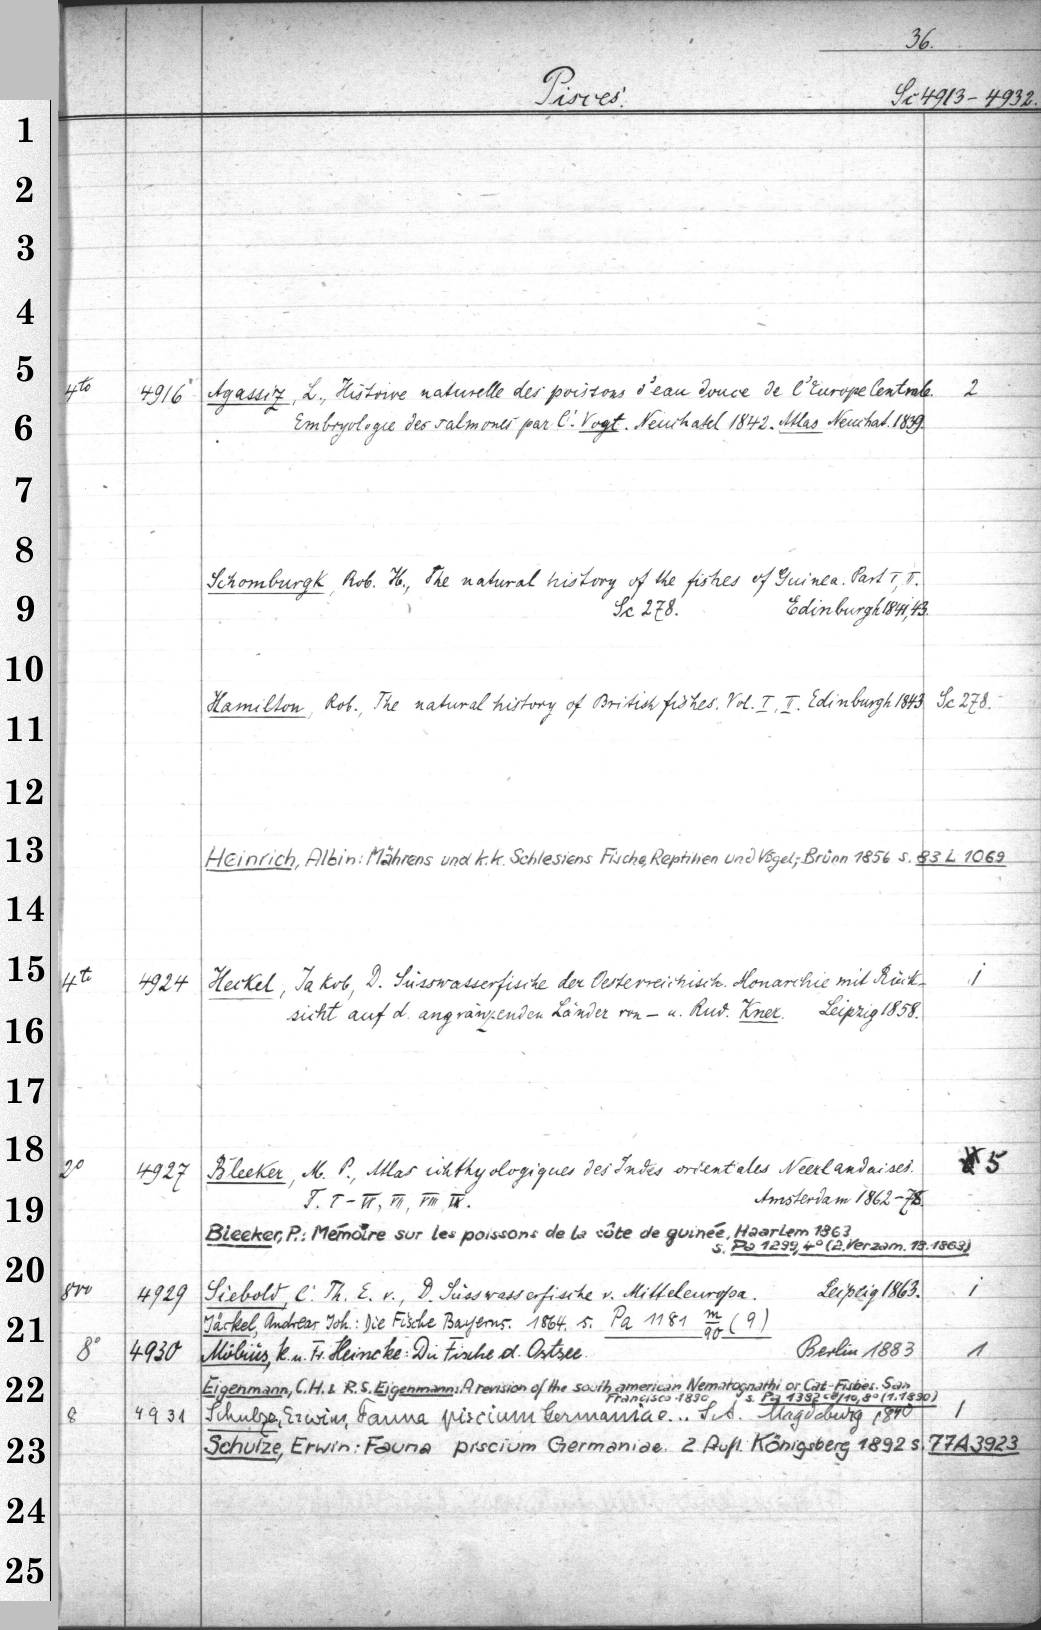 36.
Pisces.
Sc 4913-4932.
1
2
3
4
5
4to 4916 Agassiz, L., Histoire naturelle des poissons d'eau douce de l'Europe Centrale. 2
6
Embryologie des salmones par C. Vogt. Neuchatel 1842. Atlas Neuchat. 1839.
7
8
Schomburgk, Rob. H., The natural history of the fishes of Guinea. Part I, II.
9
Sc 278. Edinburgh 1841, 43.
10
Hamilton, Rob., The natural history of British fishes. Vol. I, II. Edinburgh 1843 Sc 278.
11
12
13
Heinrich, Albin: Mährens und k.k. Schlesiens Fische, Reptilien und Vögel; Brünn 1856 s. 83 L 1069
14
15
4to 4924 Heckel, Jakob, D. Süsswasserfische der Oesterreichisch. Monarchie mit Rück- 1
sicht auf d. angränzenden Länder von - u. Rud. Kner. Leipzig 1858.
16
17
18
2o 4927 Bleeker, M. P., Atlas ichthyologiques des Indes orientales Neerlandaises. 5
19
T. I-VI, VII, VIII, IX. Amsterdam 1862-78.
Bleeker, P.: Mémoire sur les poissons de la côte de guinée, Haarlem 1863
s. Pa 1299, 4o (2. Verzam. 18. 1863)
20
8vo 4929 Siebold, C. Th. E. v., D. Süsswasserfische v. Mitteleuropa. Leipzig 1863. 1
21
Jäckel, Andreas Joh.: Die Fische Bayerns. 1864. s. Pa 1181 m/90 (9)
8o 4930 Möbius, K. u. Fr. Heincke: Die Fische d. Ostsee. Berlin 1883 1
22
Eigenmann, C.H. & R.S. Eigenmann: A revision of the south american Nematognathi or Cat-Fishes. San
Francisco 1890 s. Pa 1382 /10, 8o (1.1890)
8 4931 Schulze, Erwin, Fauna piscium Germaniae... S.A. Magdeburg 1890 1
23
Schulze, Erwin: Fauna piscium Germaniae. 2. Aufl. Königsberg 1892 s. 77A3923
24
25